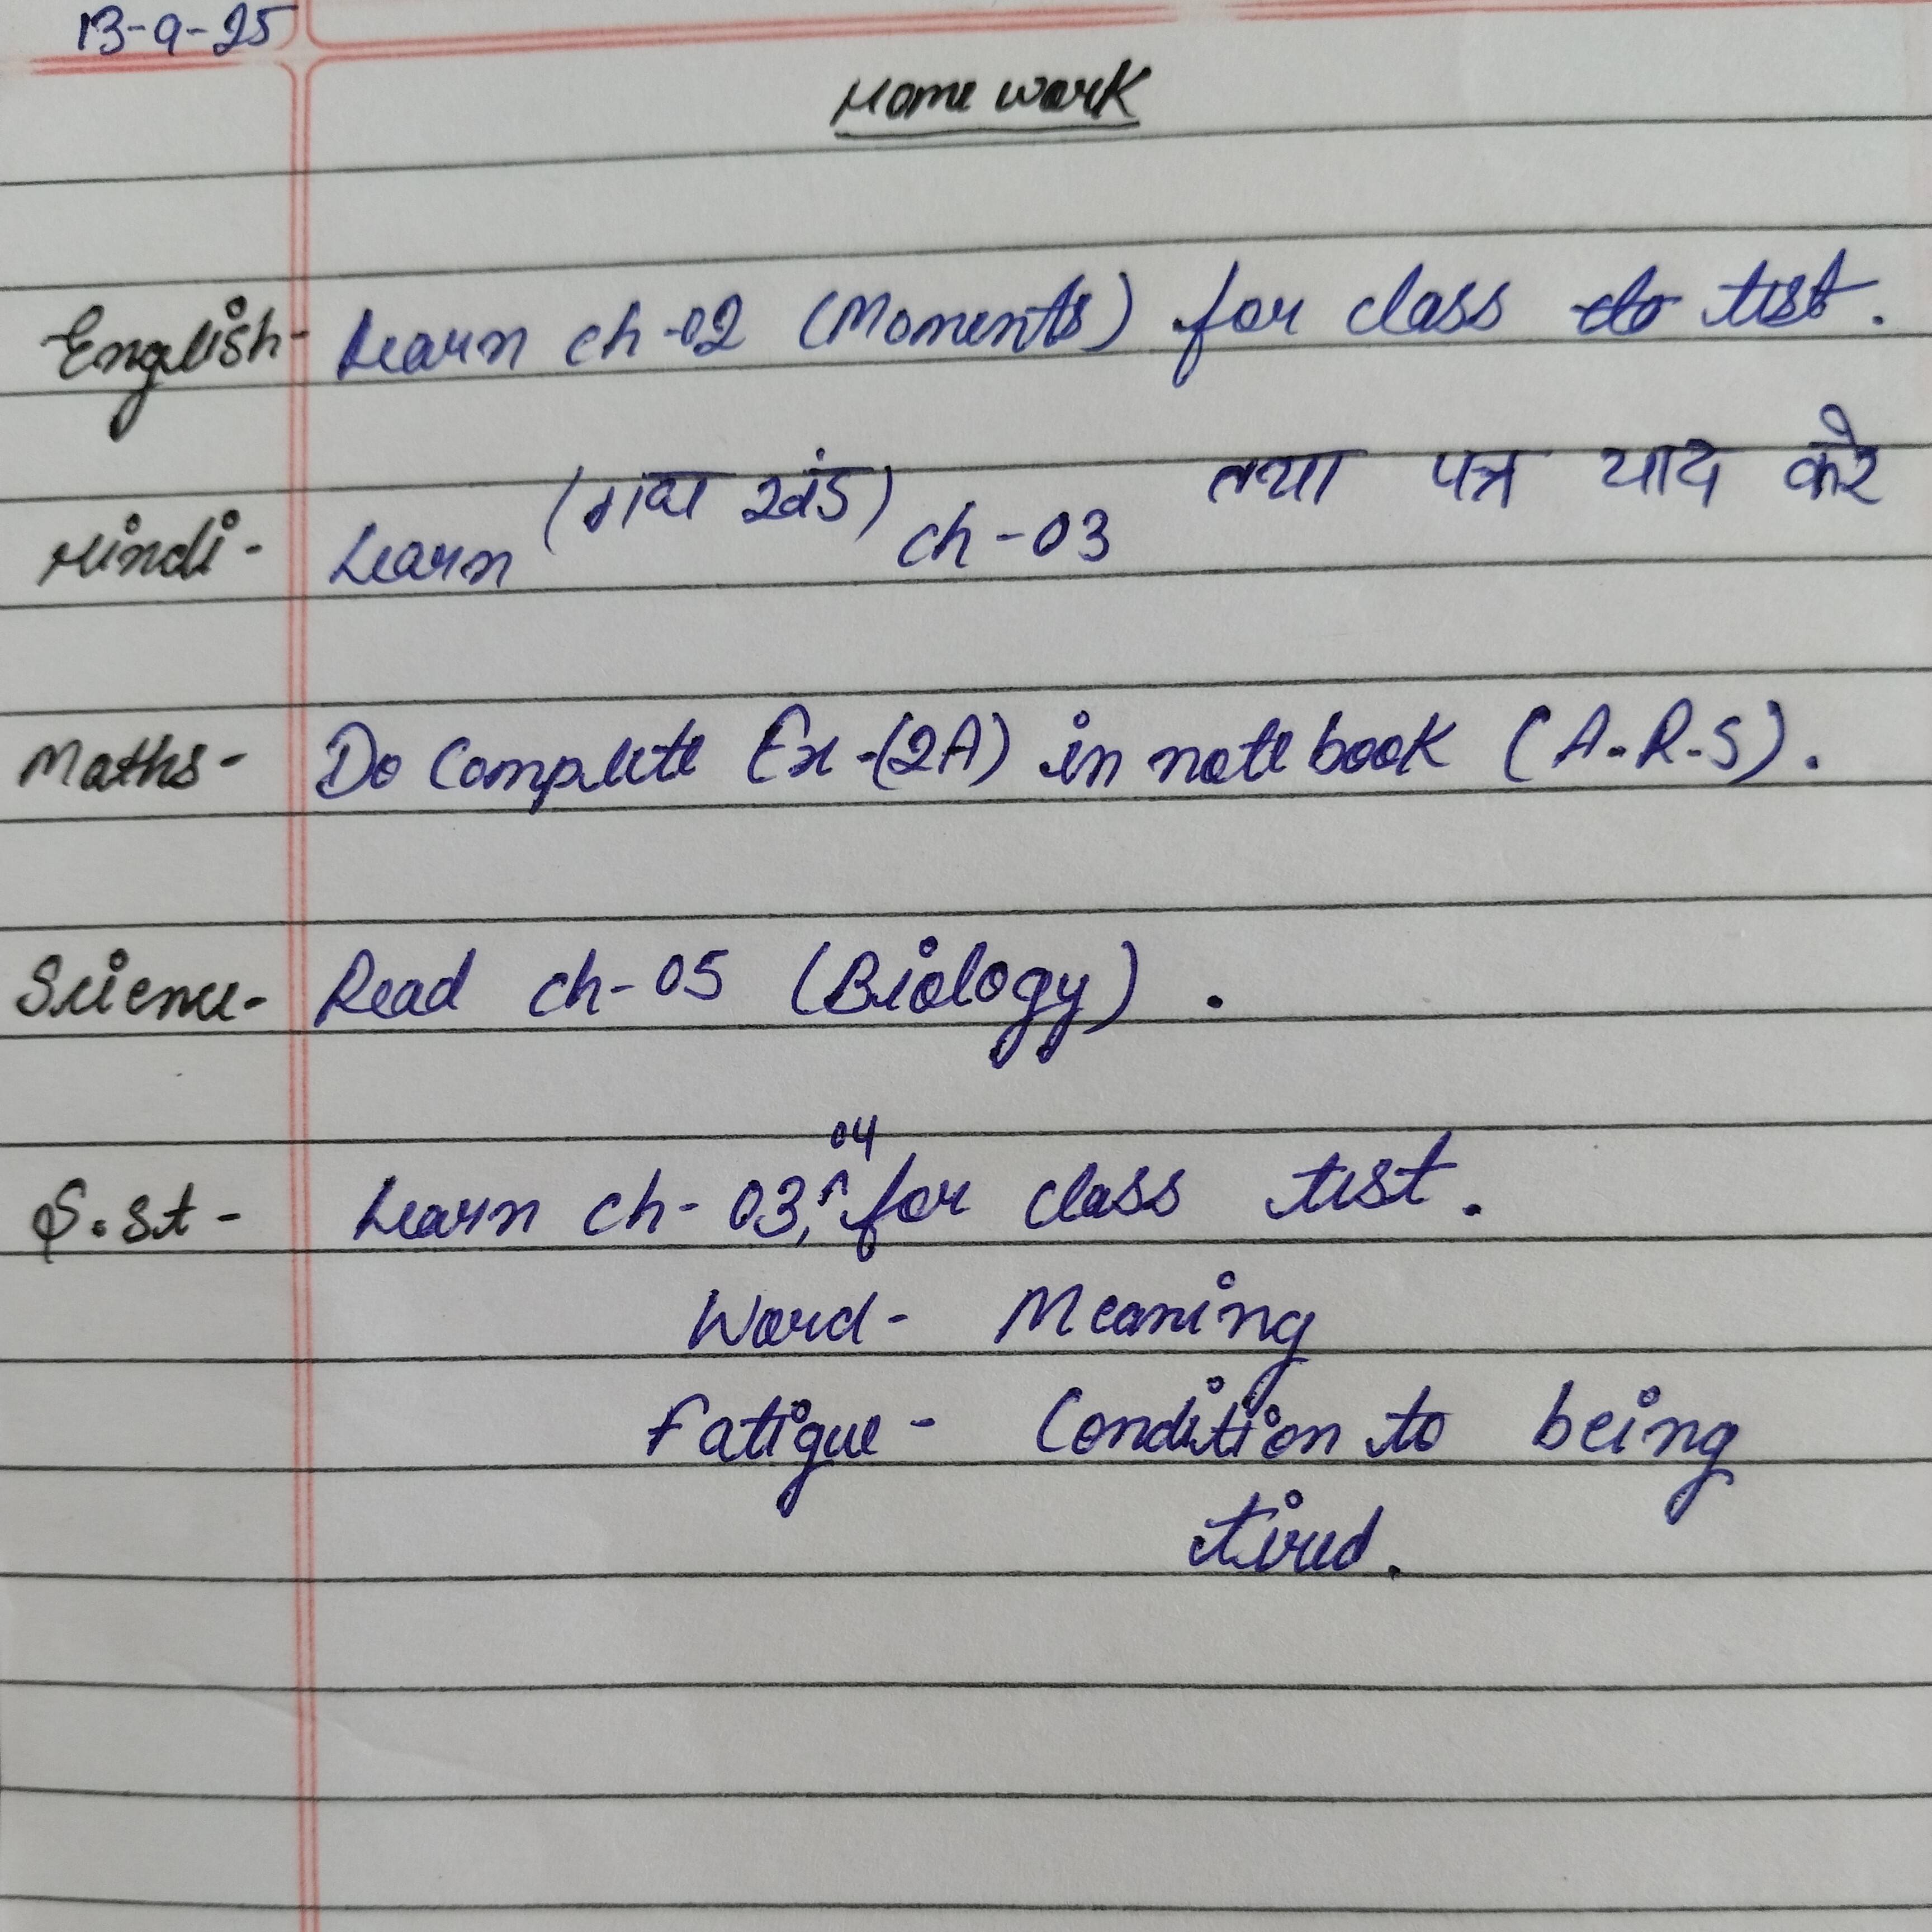 13-9-25
Home work
English- Learn ch-02 (Moments) for class to test.
Hindi- Learn (गद्य खंड) ch-03 तथा पत्र याद करे
Maths- Do Complete Ex-(2A) in note book (A.R.S).
Science- Read ch-05 (Biology).
S.st- Learn ch-03, 04 for class test.
Word- Meaning
Fatigue- Condition to being
tired.